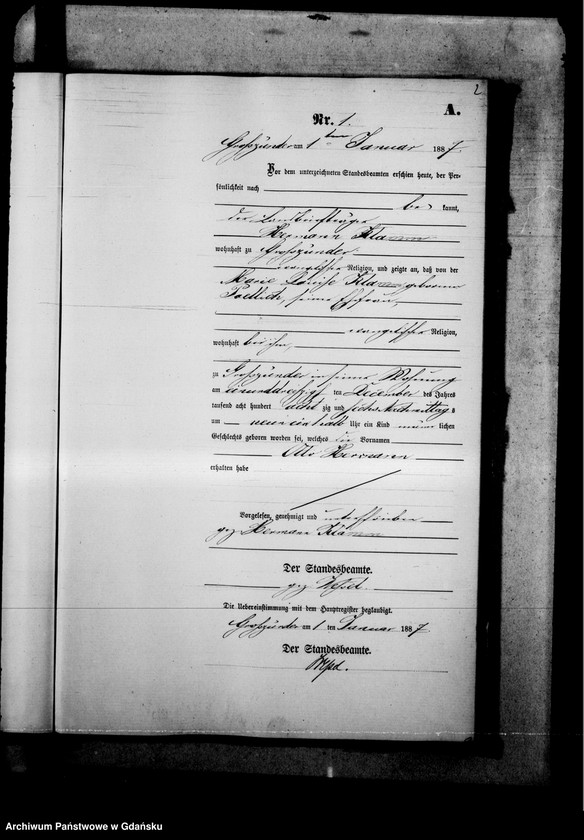 2
A.
Nr. 1.
Großzünder am 1 ten Januar 1887.
Vor dem unterzeichneten Standesbeamten erschien heute, der Per-
sönlichkeit nach
be kannt,
der
Hermann Klamm
wohnhaft zu Großzünder
evangelischer Religion, und zeigte an, daß von der
Marie Louise Klamm geborenen
seiner Ehefrau,
evangelischer Religion,
wohnhaft bei ihm,
zu Großzünder in seiner Wohnung
am einunddreißigsten December des Jahres
tausend acht hundert acht zig und sechs Nachmittags
um neun einhalb Uhr ein Kind männlichen
Geschlechts geboren worden sei, welches die Vornamen
Otto Hermann
erhalten habe
Vorgelesen, genehmigt und unterschrieben
gez Hermann Klamm
Der Standesbeamte.
gez
Die Uebereinstimmung mit dem Hauptregister beglaubigt.
Großzünder am 1 ten Januar 1887
Der Standesbeamte.
Archiwum Państwowe w Gdańsku